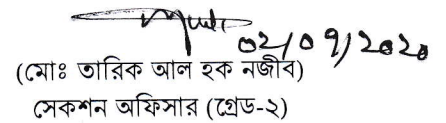 ০২/০৭/২০২০
(মোঃ তারিক আল হক নজীব)
সেকশন অফিসার (গ্রেড-২)